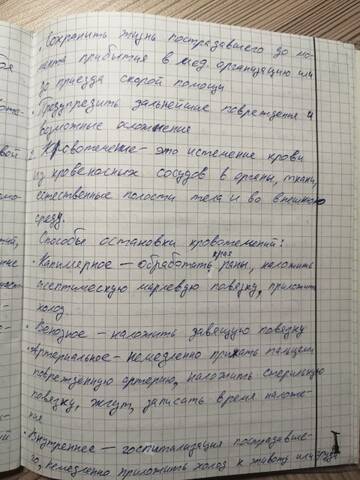 • Сохранить жизнь пострадавшего до мо-
мента прибытия в мед. организацию или
до приезда скорой помощи
• Предупредить дальнейшие повреждения и
возможные осложнения
2. Кровотечение – это истечение крови
из кровеносных сосудов в органы, ткани,
естественные полости тела и во внешнюю
среду.
Способы остановки кровотечений:
• Капиллярное – обработать края раны, наложить
асептическую марлевую повязку, приложить
холод
• Венозное – наложить давящую повязку
• Артериальное – немедленно прижать пальцем
поврежденную артерию, наложить стерильную
повязку, жгут, записать время наложе-
ния
• Внутреннее – госпитализация пострадавше-
го, немедленно приложить холод к животу или груди